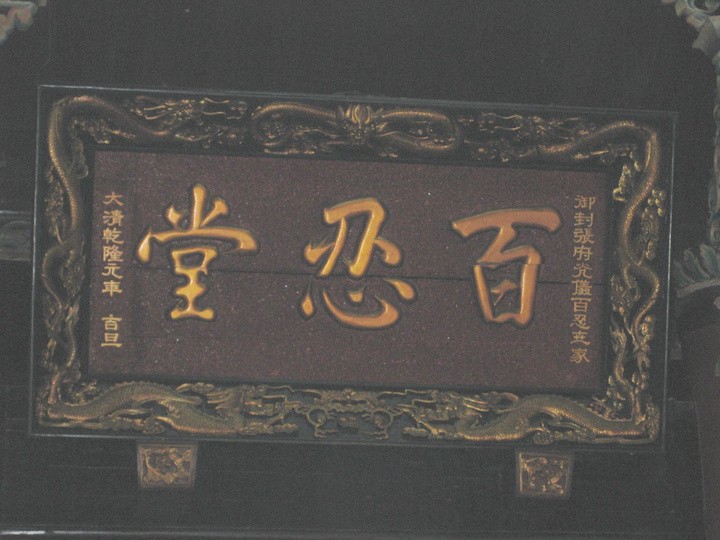 御封張府儀百忍世家
百忍堂
大清乾隆元年 吉旦